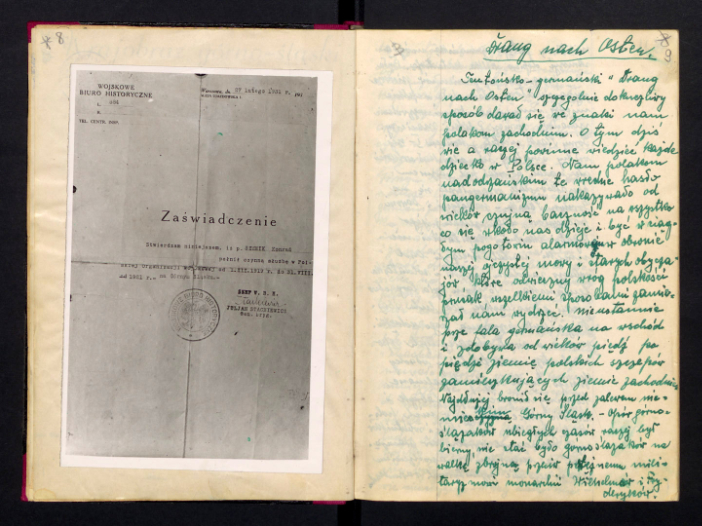 8
WOJSKOWE
BIURO HISTORYCZNE
L.
TEL. CENTR. MSW.
Warszawa, dn. lutego r. 193
Zaświadczenie
Stwierdzam niniejszem, iż p. Konrad
pełnił czynną służbę w Pol-
skiej Organizacji Wojskowej od 1.III.1919 r. do 31.VIII.
SZEF W. B. H.
JULJAN STACHIEWICZ
3
8
9
Drang nach Osten.
Teutońsko-germański "Drang
nach Osten" szczególnie dokuczliwy
sposób dawał się we znaki nam
polakom zachodnim. O tym dziś
wie a raczej powinne wiedzieć każde
dziecko w Polsce. Nam polakom
nadodrzańskim te wredne hasło
pangermanizmu nakazywało od
wieków czujną baczność na wszystko
co się wkoło nas dzieje i być w ciąg-
łym pogotowiu alarmowym w obronie
naszej ojczystej mowy i starych obycza-
jów które odwieczny wróg polskości
prusak wszelkiemi sposobami zamie-
rzał nam wydrzeć. Nieustannie
prze fala germańska na wschód
i zdobywa od wieków piędź po
piędzi ziemię polskich szczepów
zamieszkujących ziemie zachodnie
Najdłużej bronił się przed zalewem nie-
Górny Śląsk. - Opór górno-
ślązaków ubiegłych czasów raczej był
bierny, nie stać było gornoslązaków na
walkę zbrojną przeciw potężnemu mili-
taryzmowi monarchii Wilhelmów i Fry-
deryków.